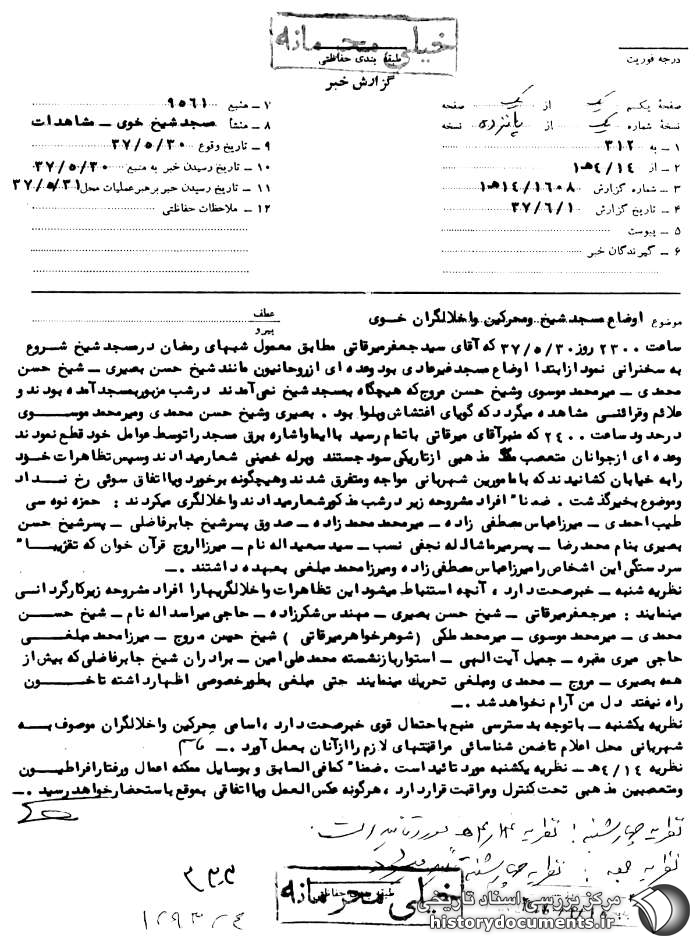 خیلی محرمانه
طبقه بندی حفاظتی
درجه فوریت
گزارش خبر
صفحهٔ یکم یک از یک صفحه
نسخهٔ شماره یک از پانزده نسخه
۱ ـ به ۳۱۲
۲ ـ از ۴/۱۴ﻫ۱
۳ ـ شماره گزارش ۱۶۰۸/۱۴ﻫ۱
۴ ـ تاریخ گزارش ۳۷/۶/۱
۵ ـ پیوست
۶ ـ گیرندگان خبر
۷ ـ منبع ۹۵۶۱
۸ ـ منشأ مسجد شیخ خوی ـ مشاهدات
۹ ـ تاریخ وقوع ۳۷/۵/۳۰
۱۰ ـ تاریخ رسیدن خبر به منبع ۳۷/۵/۳۰
۱۱ ـ تاریخ رسیدن خبر برهبر عملیات محل ۳۷/۵/۳۱
۱۲ ـ ملاحظات حفاظتی
موضوع اوضاع مسجد شیخ ومحرکین واخلالگران خوی
عطف
پیرو
ساعت ۲۳۰۰ روز ۳۷/۵/۳۰ که آقای سید جعفر میرقاتی مطابق معمول شبهای رمضان در مسجد شیخ شروع
به سخنرانی نمود از ابتدا اوضاع مسجد غیرعادی بود وعده ای از روحانیون مانند شیخ حسن بصیری ـ شیخ حسن
محمدی ـ میرمحمد موسوی وشیخ حسن مروج که هیچگاه بمسجد شیخ نمی آمدند در شب مزبور بمسجد آمده بودند و
علائم وقرائنی مشاهده میگردد که گویای اغتشاش وبلوا بود . بصیری وشیخ حسن محمدی ومیرمحمد موسوی
در حدود ساعت ۲۴۰۰ که منبر آقای میرقاتی باتمام رسید با ایما واشاره برق مسجد را توسط عوامل خود قطع نمودند
وعده ای از جوانان متعصب مذهبی از تاریکی سود جستند وبرله خمینی شعار میدادند وسپس تظاهرات خود
را به خیابان کشانیدند که با مامورین شهربانی مواجه ومتفرق شدند وهیچگونه برخورد ویا اتفاق سوئی رخ نداد
وموضوع بخیر گذشت . ضمنا" افراد مشروحه زیر در شب مذکور شعار میدادند واخلالگری میکردند : حمزه نوه سی
طیب احمدی ـ میرزا عباس مصطفی زاده ـ میرمحمد محمدزاده ـ صدوق پسر شیخ جابر فاضلی ـ پسر شیخ حسن
بصیری بنام محمدرضا ـ پسر میرماشااله نجفی نسب ـ سید سعید اله نام ـ میرزا اروج قرآن خوان که تقریبا"
سردستگی این اشخاص را میرزا عباس مصطفی زاده ومیرزا محمد مبلغی بعهده داشتند .ـ
نظریه شنبه ـ خبر صحت دارد ، آنچه استنباط میشود این تظاهرات واخلالگریها را افراد مشروحه زیر کارگردانی
مینمایند : میرجعفر میرقاتی ـ شیخ حسن بصیری ـ مهندس شکرزاده ـ حاجی میراسداله نام ـ شیخ حسن
محمدی ـ میرمحمد موسوی ـ میرمحمد ملکی (شوهر خواهر میرقاتی ) شیخ حسن مروج ـ میرزا محمد مبلغی
حاجی میری مقبره ـ جمیل آیت الهی ـ استوار بازنشسته محمدعلی امین ـ برادران شیخ جابر فاضلی که بیش از
همه بصیری ـ مروج ـ محمدی ومبلغی تحریک مینمایند حتی مبلغی بطور خصوصی اظهار داشته تا خون
راه نیفتد دل من آرام نخواهد شد .ـ
نظریه یکشنبه ـ با توجه به دسترسی منبع باحتمال قوی خبر صحت دارد ، اسامی محرکین واخلالگران موصوف به
شهربانی محل اعلام تا ضمن شناسائی مراقبتهای لازم را از آنان بعمل آورد .ـ
نظریه ۴/۱۴ﻫ ـ نظریه یکشنبه مورد تائید است . ضمنا" کمافی السابق و بوسایل ممکنه اعمال ورفتار افراطیون
ومتعصبین مذهبی تحت کنترل ومراقبت قرار دارد ، هرگونه عکس العمل ویا اتفاقی بموقع باستحضار خواهد رسید .ـ
نظریه چهارشنبه : نظریه ۴/۱۴ﻫ مورد تائید است .
نظریه جمعه : نظریه چهارشنبه
۳۳۳
خیلی محرمانه
طبقه بندی حفاظتی
مرکز بررسی اسناد تاریخی
historydocuments.ir